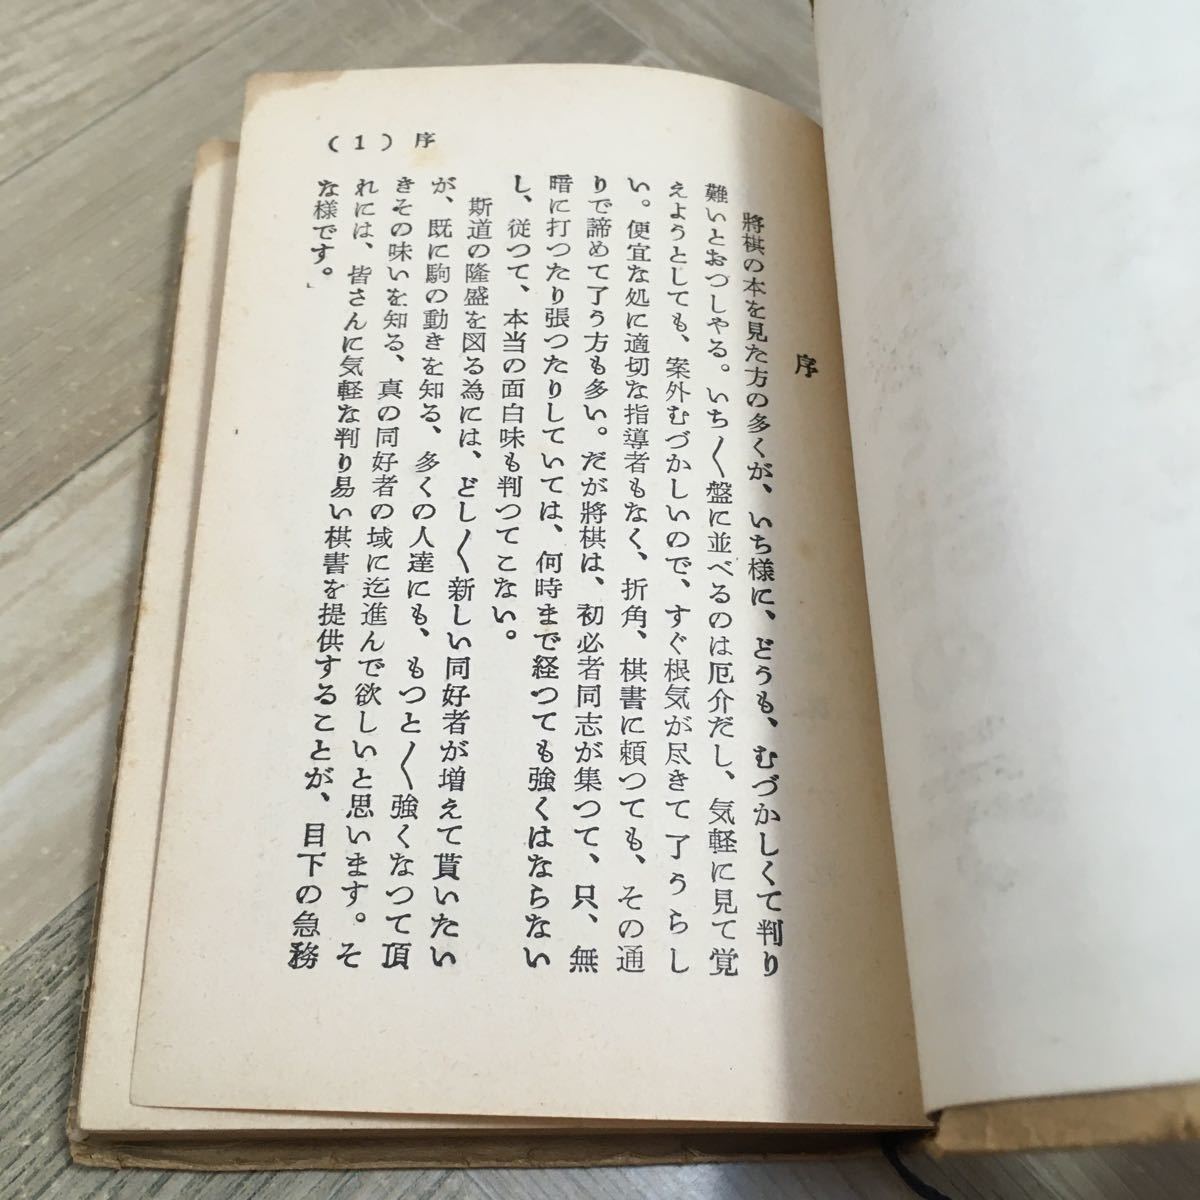 (1) 序
序
将棋の本を見た方の多くが、いち様に、どうも、むづかしくて判り
難いとおつしやる。いち〱盤に並べるのは厄介だし、気軽に見て覚
えようとしても、案外むづかしいので、すぐ根気が尽きて了うらし
い。便宜な処に適切な指導者もなく、折角、棋書に頼つても、その通
りで諦めて了う方も多い。だが将棋は、初必者同志が集つて、只、無
暗に打つたり張つたりしていては、何時まで経つても強くはならない
し、従つて、本当の面白味も判つてこない。
斯道の隆盛を図る為には、どし〱新しい同好者が増えて貰いたい
が、既に駒の動きを知る、多くの人達にも、もつと〱強くなつて頂
きその味いを知る、真の同好者の域に迄進んで欲しいと思います。そ
れには、皆さんに気軽な判り易い棋書を提供することが、目下の急務
な様です。」